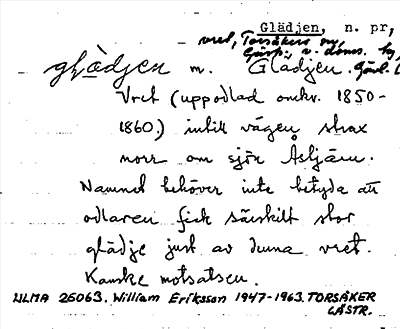 Glädjen, n. pr,
vret, Torsåkers sn,
Gästr. v. doms. hg,
glädjen m. Glädjen. Gävl.
Vret (uppodlad omkr. 1850-
1860) intill vägen strax
norr om sjön Åsljärn.
Namnet behöver inte betyda att
odlaren fick särskilt stor
glädje just av denna vret.
Kanske motsatsen.
ULMA 25063. William Eriksson 1947-1963. TORSÅKER
GÄSTR.